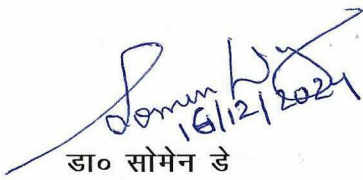 Somen Dey
16/12/2024
डा० सोमेन डे